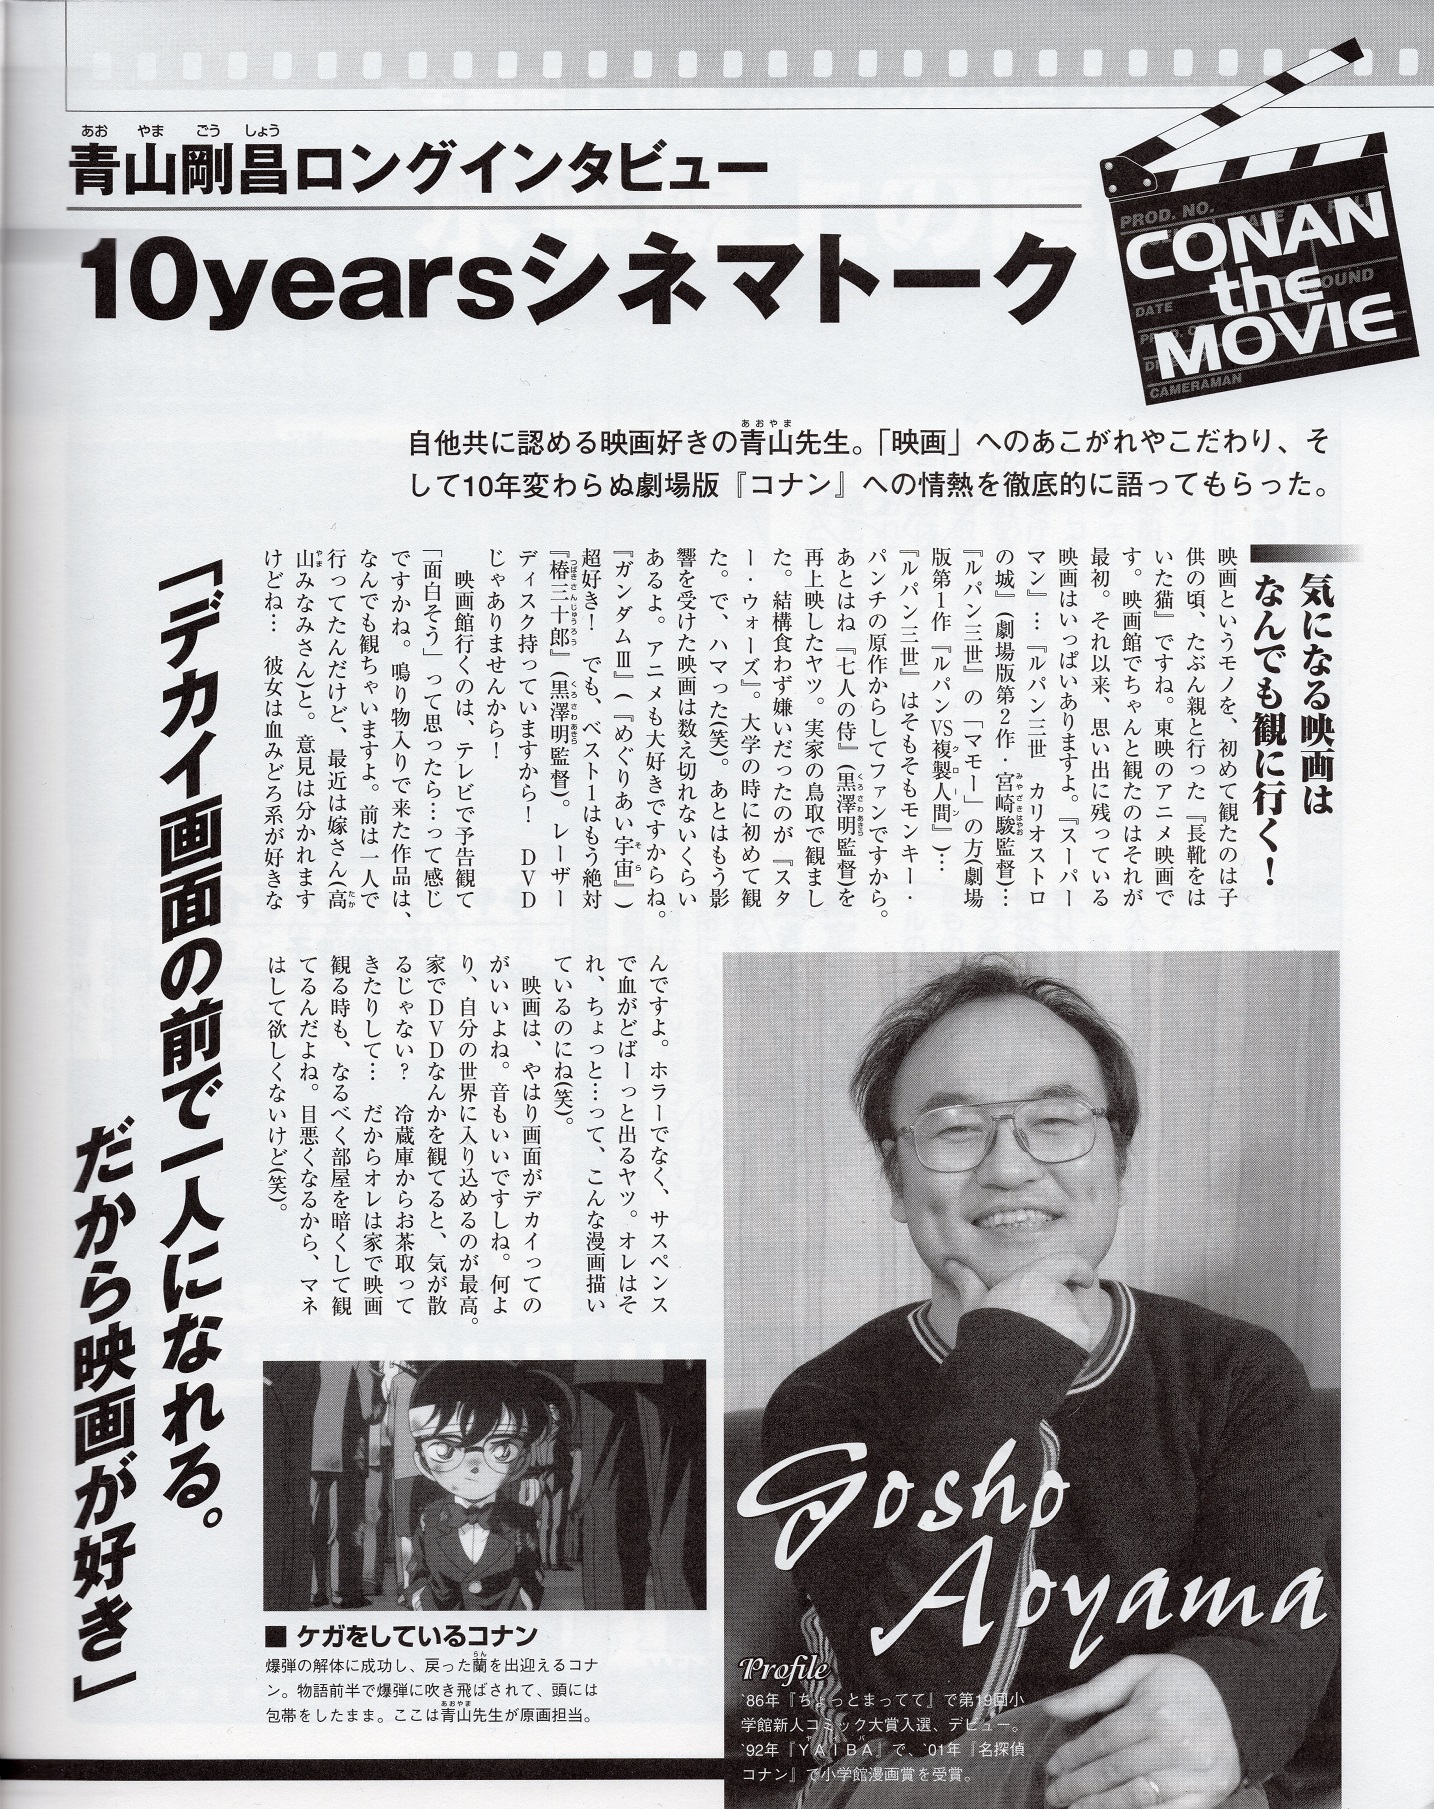 あおやまごうしょう
青山剛昌ロングインタビュー
10yearsシネマトーク
PROD. NO.
CONAN
the
MOVIE
DATE
SOUND
CAMERAMAN
あおやま
自他共に認める映画好きの青山先生。「映画」へのあこがれやこだわり、そ
して10年変わらぬ劇場版『コナン』への情熱を徹底的に語ってもらった。
気になる映画は
なんでも観に行く!
映画というモノを、初めて観たのは子
供の頃、たぶん親と行った『長靴をは
いた猫』ですね。東映のアニメ映画で
す。映画館でちゃんと観たのはそれが
最初。それ以来、思い出に残っている
映画はいっぱいありますよ。『スーパー
マン』…『ルパン三世 カリオストロ
の城』(劇場版第2作・宮崎駿監督)…
みやざきはやお
『ルパン三世』の「マモー」の方(劇場
版第1作『ルパンVS複製人間』)…
クローン
『ルパン三世』はそもそもモンキー・
パンチの原作からしてファンですから。
あとはね『七人の侍』(黒澤明監督)を
くろさわあきら
再上映したヤツ。実家の鳥取で観まし
た。結構食わず嫌いだったのが『スタ
ー・ウォーズ』。大学の時に初めて観
た。で、ハマった(笑)。あとはもう影
響を受けた映画は数え切れないくらい
あるよ。アニメも大好きですからね。
『ガンダムⅢ』(『めぐりあい宇宙』)
そら
超好き! でも、ベスト1はもう絶対
『椿三十郎』(黒澤明監督)。レーザー
つばきさんじゅうろう
くろさわあきら
ディスク持っていますから! DVD
じゃありませんから!
映画館行くのは、テレビで予告観て
「面白そう」って思ったら…って感じ
ですかね。鳴り物入りで来た作品は、
なんでも観ちゃいますよ。前は一人で
行ってたんだけど、最近は嫁さん(高
たか
山みなみさん)と。意見は分かれます
やま
けどね… 彼女は血みどろ系が好きな
んですよ。ホラーでなく、サスペンス
で血がどばーっと出るヤツ。オレはそ
れ、ちょっと…って、こんな漫画描い
ているのにね(笑)。
映画は、やはり画面がデカイっての
がいいよね。音もいいですしね。何よ
り、自分の世界に入り込めるのが最高。
家でDVDなんかを観てると、気が散
るじゃない? 冷蔵庫からお茶取って
きたりして… だからオレは家で映画
観る時も、なるべく部屋を暗くして観
てるんだよね。目悪くなるから、マネ
はして欲しくないけど(笑)。
「デカイ画面の前で一人になれる。
だから映画が好き」
■ ケガをしているコナン
らん
爆弾の解体に成功し、戻った蘭を出迎えるコナ
ン。物語前半で爆弾に吹き飛ばされて、頭には
あおやま
包帯をしたまま。ここは青山先生が原画担当。
Gosho
Aoyama
Profile
`86年『ちょっとまってて』で第19回小
学館新人コミック大賞入選、デビュー。
ヤイバ
`92年『YAIBA』で、`01年『名探偵
コナン』で小学館漫画賞を受賞。